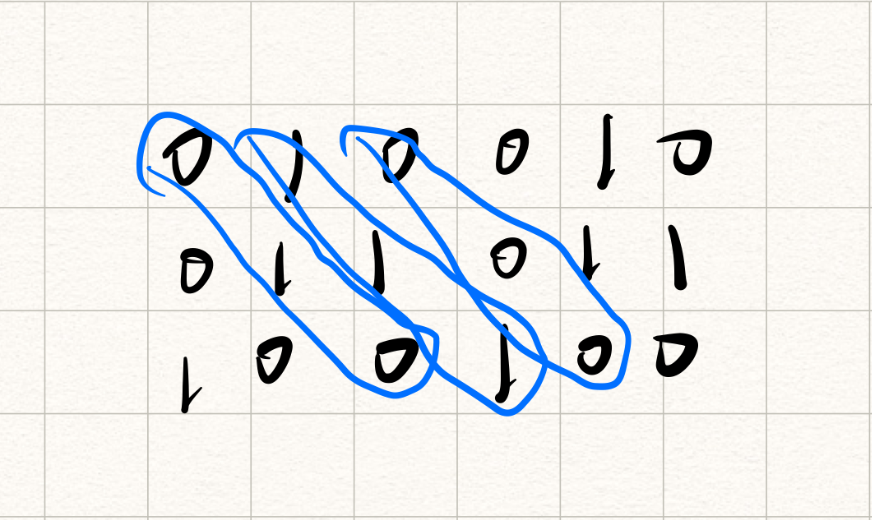 0 1 0 0 1 0
0 1 1 0 1 1
1 0 0 1 0 0